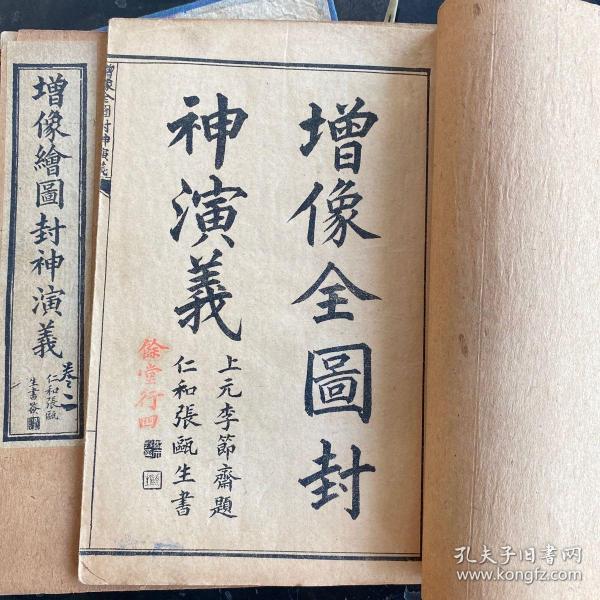 增像全圖封
神演義
上元李節齋題
仁和張甌生書
餘堂行四
增像全圖封神演義
增像繪圖封神演義
卷二
仁和張甌
生書簽
孔夫子旧书网
www.kongfz.com